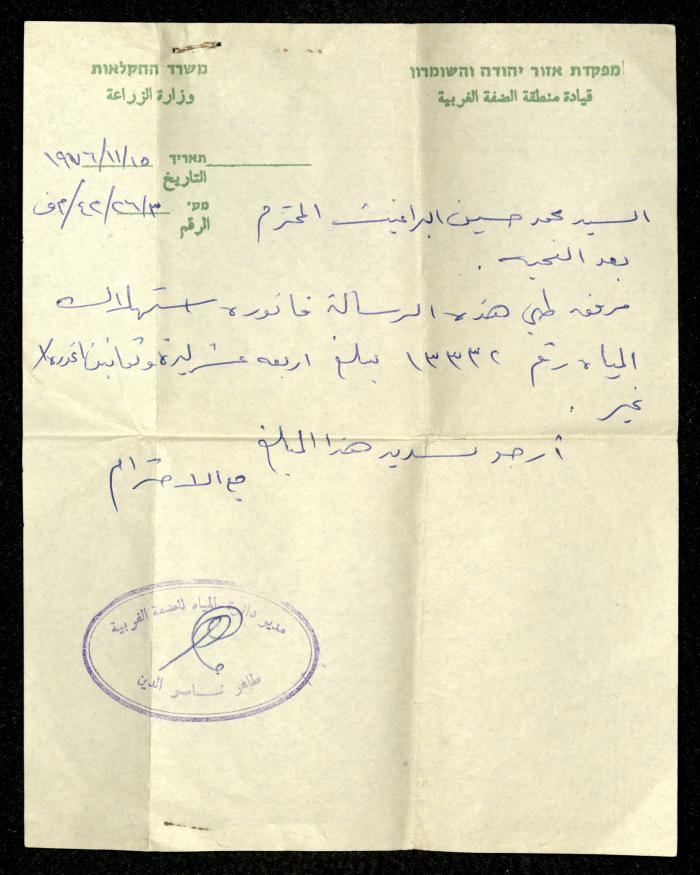 מפקדת אזור יהודה והשומרון
قيادة منطقة الضفة الغربية
משרד החקלאות
وزارة الزراعة
תאריך
التاريخ ١٩٧٦/١١/١٥
מס׳
الرقم ٣/٢٦/٤٢/
السيد محمد حسين البراغيث المحترم
بعد التحيه .
مرفقه طي هذه الرسالة فاتوره استهلاك
المياه رقم ١٣٣٣٢ بمبلغ اربعه عشر ليرة وثمانين اغوره لا
غير .
أرجو تسديد هذا المبلغ
مع الاحترام
مدير دائرة المياه للضفة الغربية
طاهر ناصر الدين